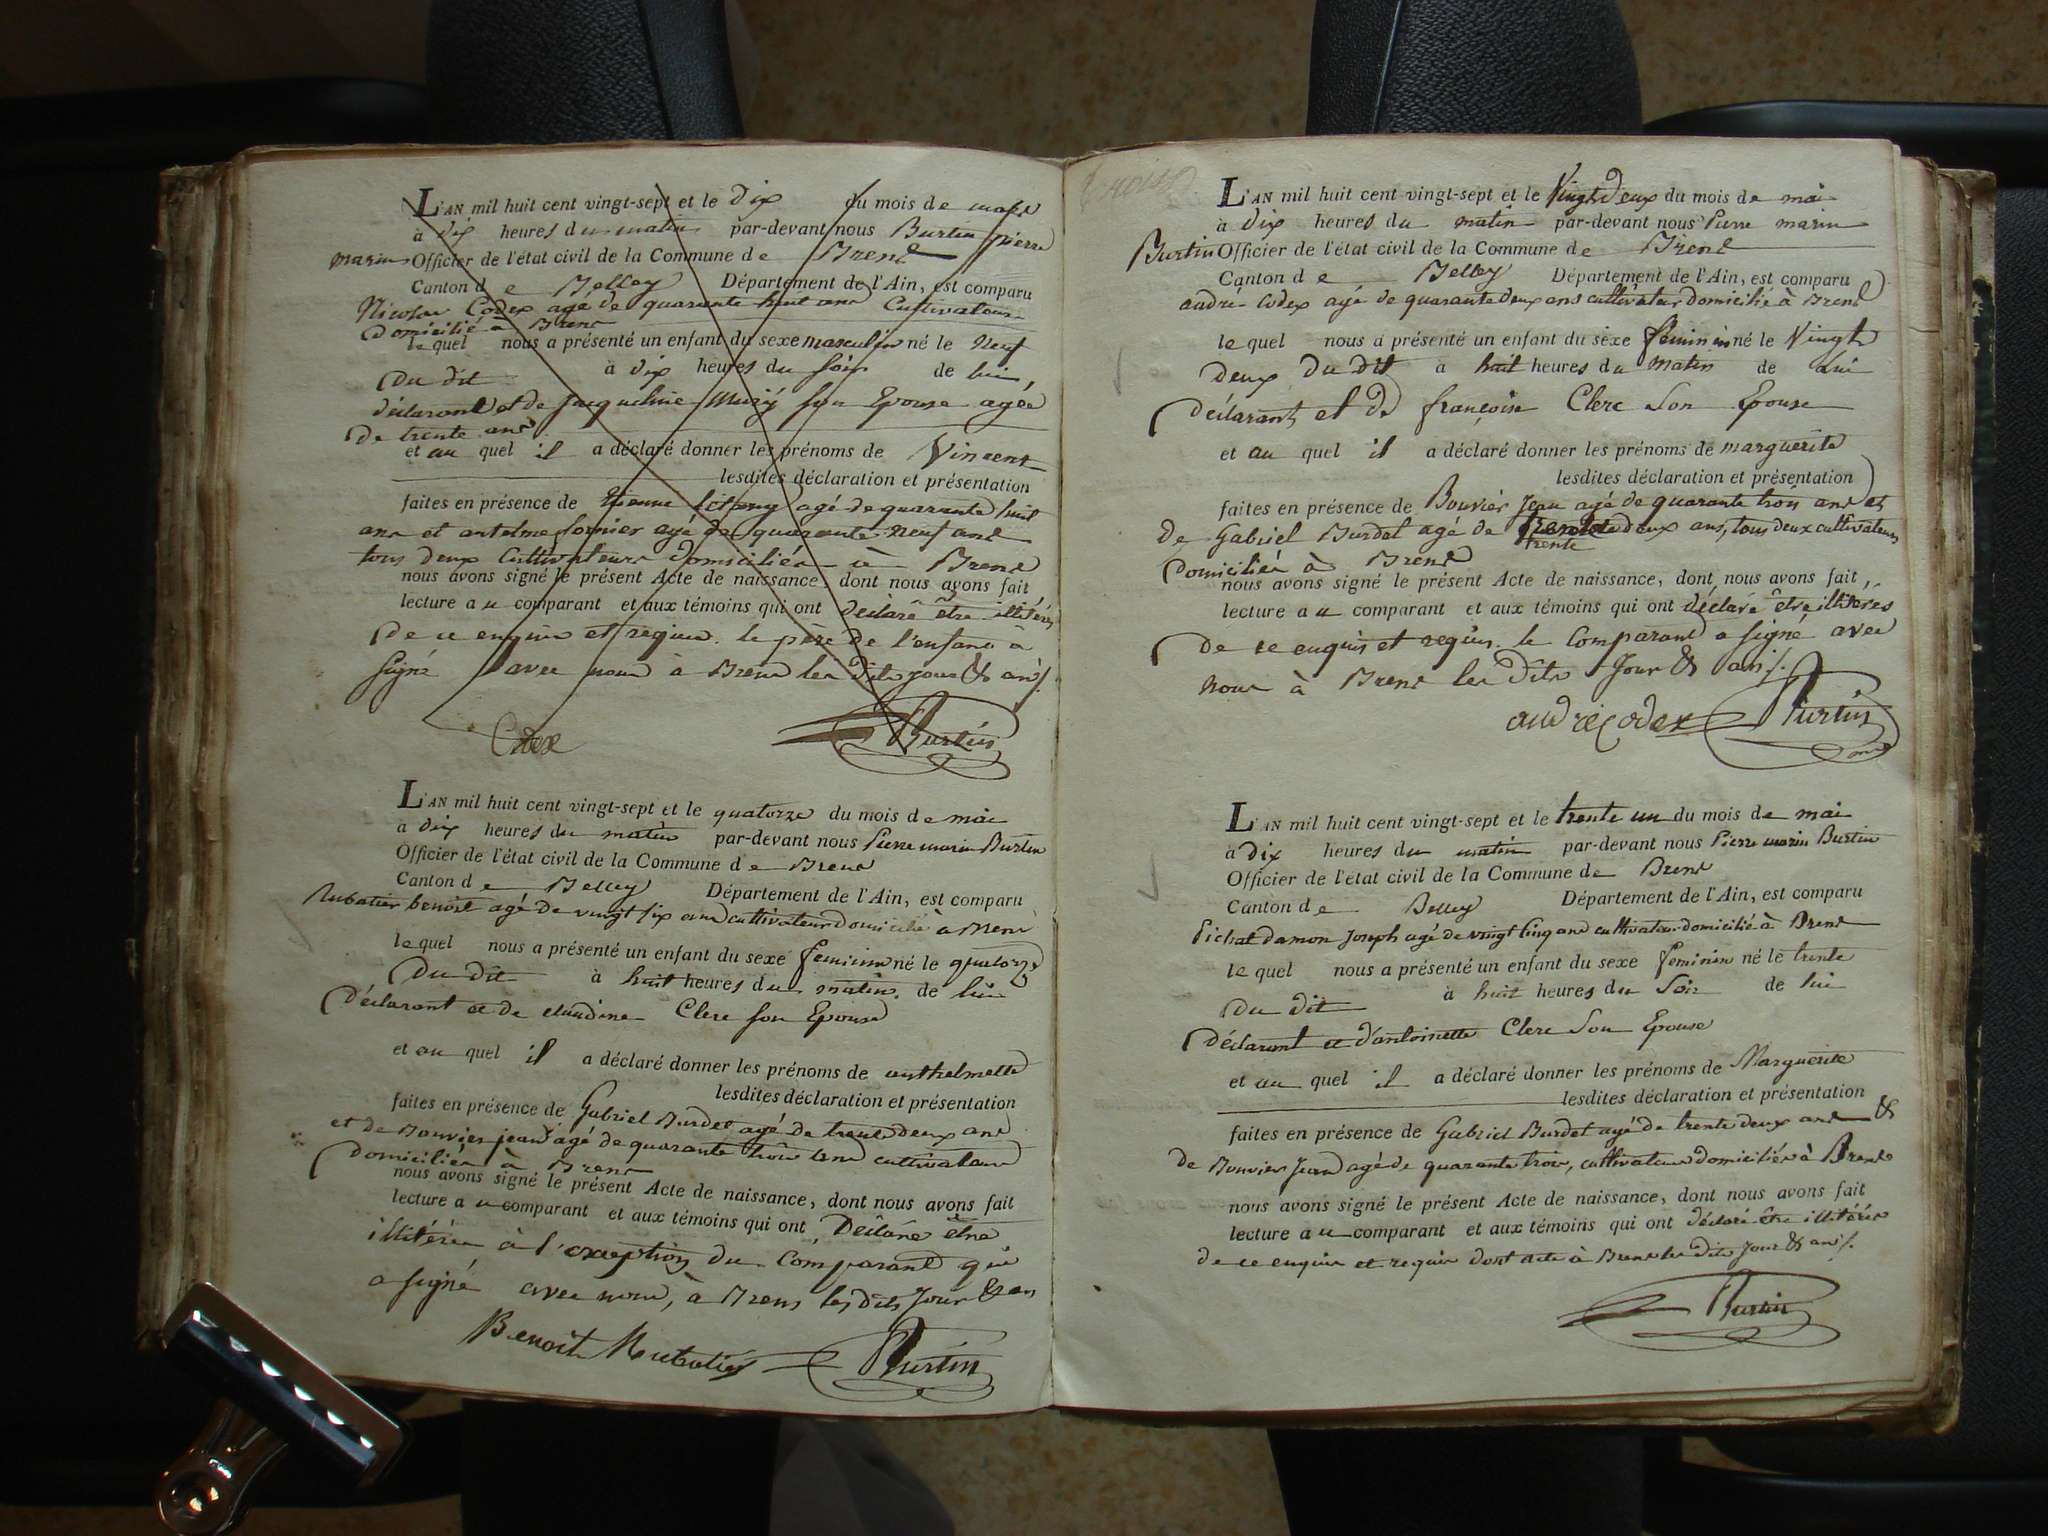 L'AN mil huit cent vingt-sept et le dix du mois de mars
à dix heures du matin par-devant nous Burtin pierre
marin Officier de l'état civil de la Commune de Brens
Canton de Belley Département de l'Ain, est comparu
Nicolas Codex agé de quarante huit ans Cultivateur
domicilié à Brens
lequel nous a présenté un enfant du sexe masculin né le Neuf
du dit à dix heures du soir de lui,
déclarant et de Jacqueline son Epouse agée
de trente ans
et au quel il a déclaré donner les prénoms de Vincent
lesdites déclaration et présentation
faites en présence de Etienne agé de quarante huit
ans et antelme fornier agé de quarante neuf ans
tous deux Cultivateurs domiciliés à Brens
nous avons signé le présent Acte de naissance, dont nous avons fait
lecture au comparant et aux témoins qui ont déclaré être illitérés
de ce enquis et requis. le père de l'enfant à
signé avec nous à Brens les dits jour & an ./.
Codex Burtin
L'AN mil huit cent vingt-sept et le quatorze du mois de mai
à dix heures du matin par-devant nous Pierre marin Burtin
Officier de l'état civil de la Commune de Brens
Canton de Belley Département de l'Ain, est comparu
Rubatier benoit agé de vingt six ans cultivateur domicilié à Brens
lequel nous a présenté un enfant du sexe feminin né le quatorze
du dit à huit heures du matin. de lui
Déclarant et de claudine Clerc son Epouse
et au quel il a déclaré donner les prénoms de anthelmette
lesdites déclaration et présentation
faites en présence de Gabriel Burdet agé de trente deux ans
et de Bouvier jean agé de quarante trois ans cultivateurs
domiciliés à Brens
nous avons signé le présent Acte de naissance, dont nous avons fait
lecture au comparant et aux témoins qui ont Déclaré être
illitérés à l'exception du Comparant qui
a signé avec nous, à Brens les dits Jour & an
Benoit Rubatier Burtin
L'AN mil huit cent vingt-sept et le Vingt deux du mois de mai
à dix heures du matin par-devant nous Pierre marin
Burtin Officier de l'état civil de la Commune de Brens
Canton de Belley Département de l'Ain, est comparu
andré Codex agé de quarante deux ans cultivateur domicilié à Brens
lequel nous a présenté un enfant du sexe féminin né le Vingt
deux du dit à huit heures du matin de lui
déclarant et de françoise Clerc son Epouse
et au quel il a déclaré donner les prénoms de marguerite
lesdites déclaration et présentation
faites en présence de Bouvier Jean agé de quarante trois ans et
de Gabriel Burdet agé de deux ans, tous deux cultivateurs
trente
Domiciliés à Brens
nous avons signé le présent Acte de naissance, dont nous avons fait
lecture au comparant et aux témoins qui ont déclaré être illitérés
de ce enquis et requis. le Comparant a signé avec
nous à Brens les dits Jour & an ./.
andré Codex Burtin
L'AN mil huit cent vingt-sept et le trente un du mois de mai
à dix heures du matin par-devant nous Pierre marin Burtin
Officier de l'état civil de la Commune de Brens
Canton de Belley Département de l'Ain, est comparu
Pichat damon Joseph agé de vingt cinq ans cultivateur domicilié à Brens
lequel nous a présenté un enfant du sexe feminin né le trente
du dit à huit heures du soir de lui
Déclarant et d'antoinette Clerc son Epouse
et au quel il a déclaré donner les prénoms de Marguerite
lesdites déclaration et présentation
faites en présence de Gabriel Burdet agé de trente deux ans &
de Bouvier Jean agé de quarante trois, cultivateurs domiciliés à Brens
nous avons signé le présent Acte de naissance, dont nous avons fait
lecture au comparant et aux témoins qui ont déclaré être illitérés
de ce enquis et requis dont acte à Brens les dits Jour & an ./.
Burtin